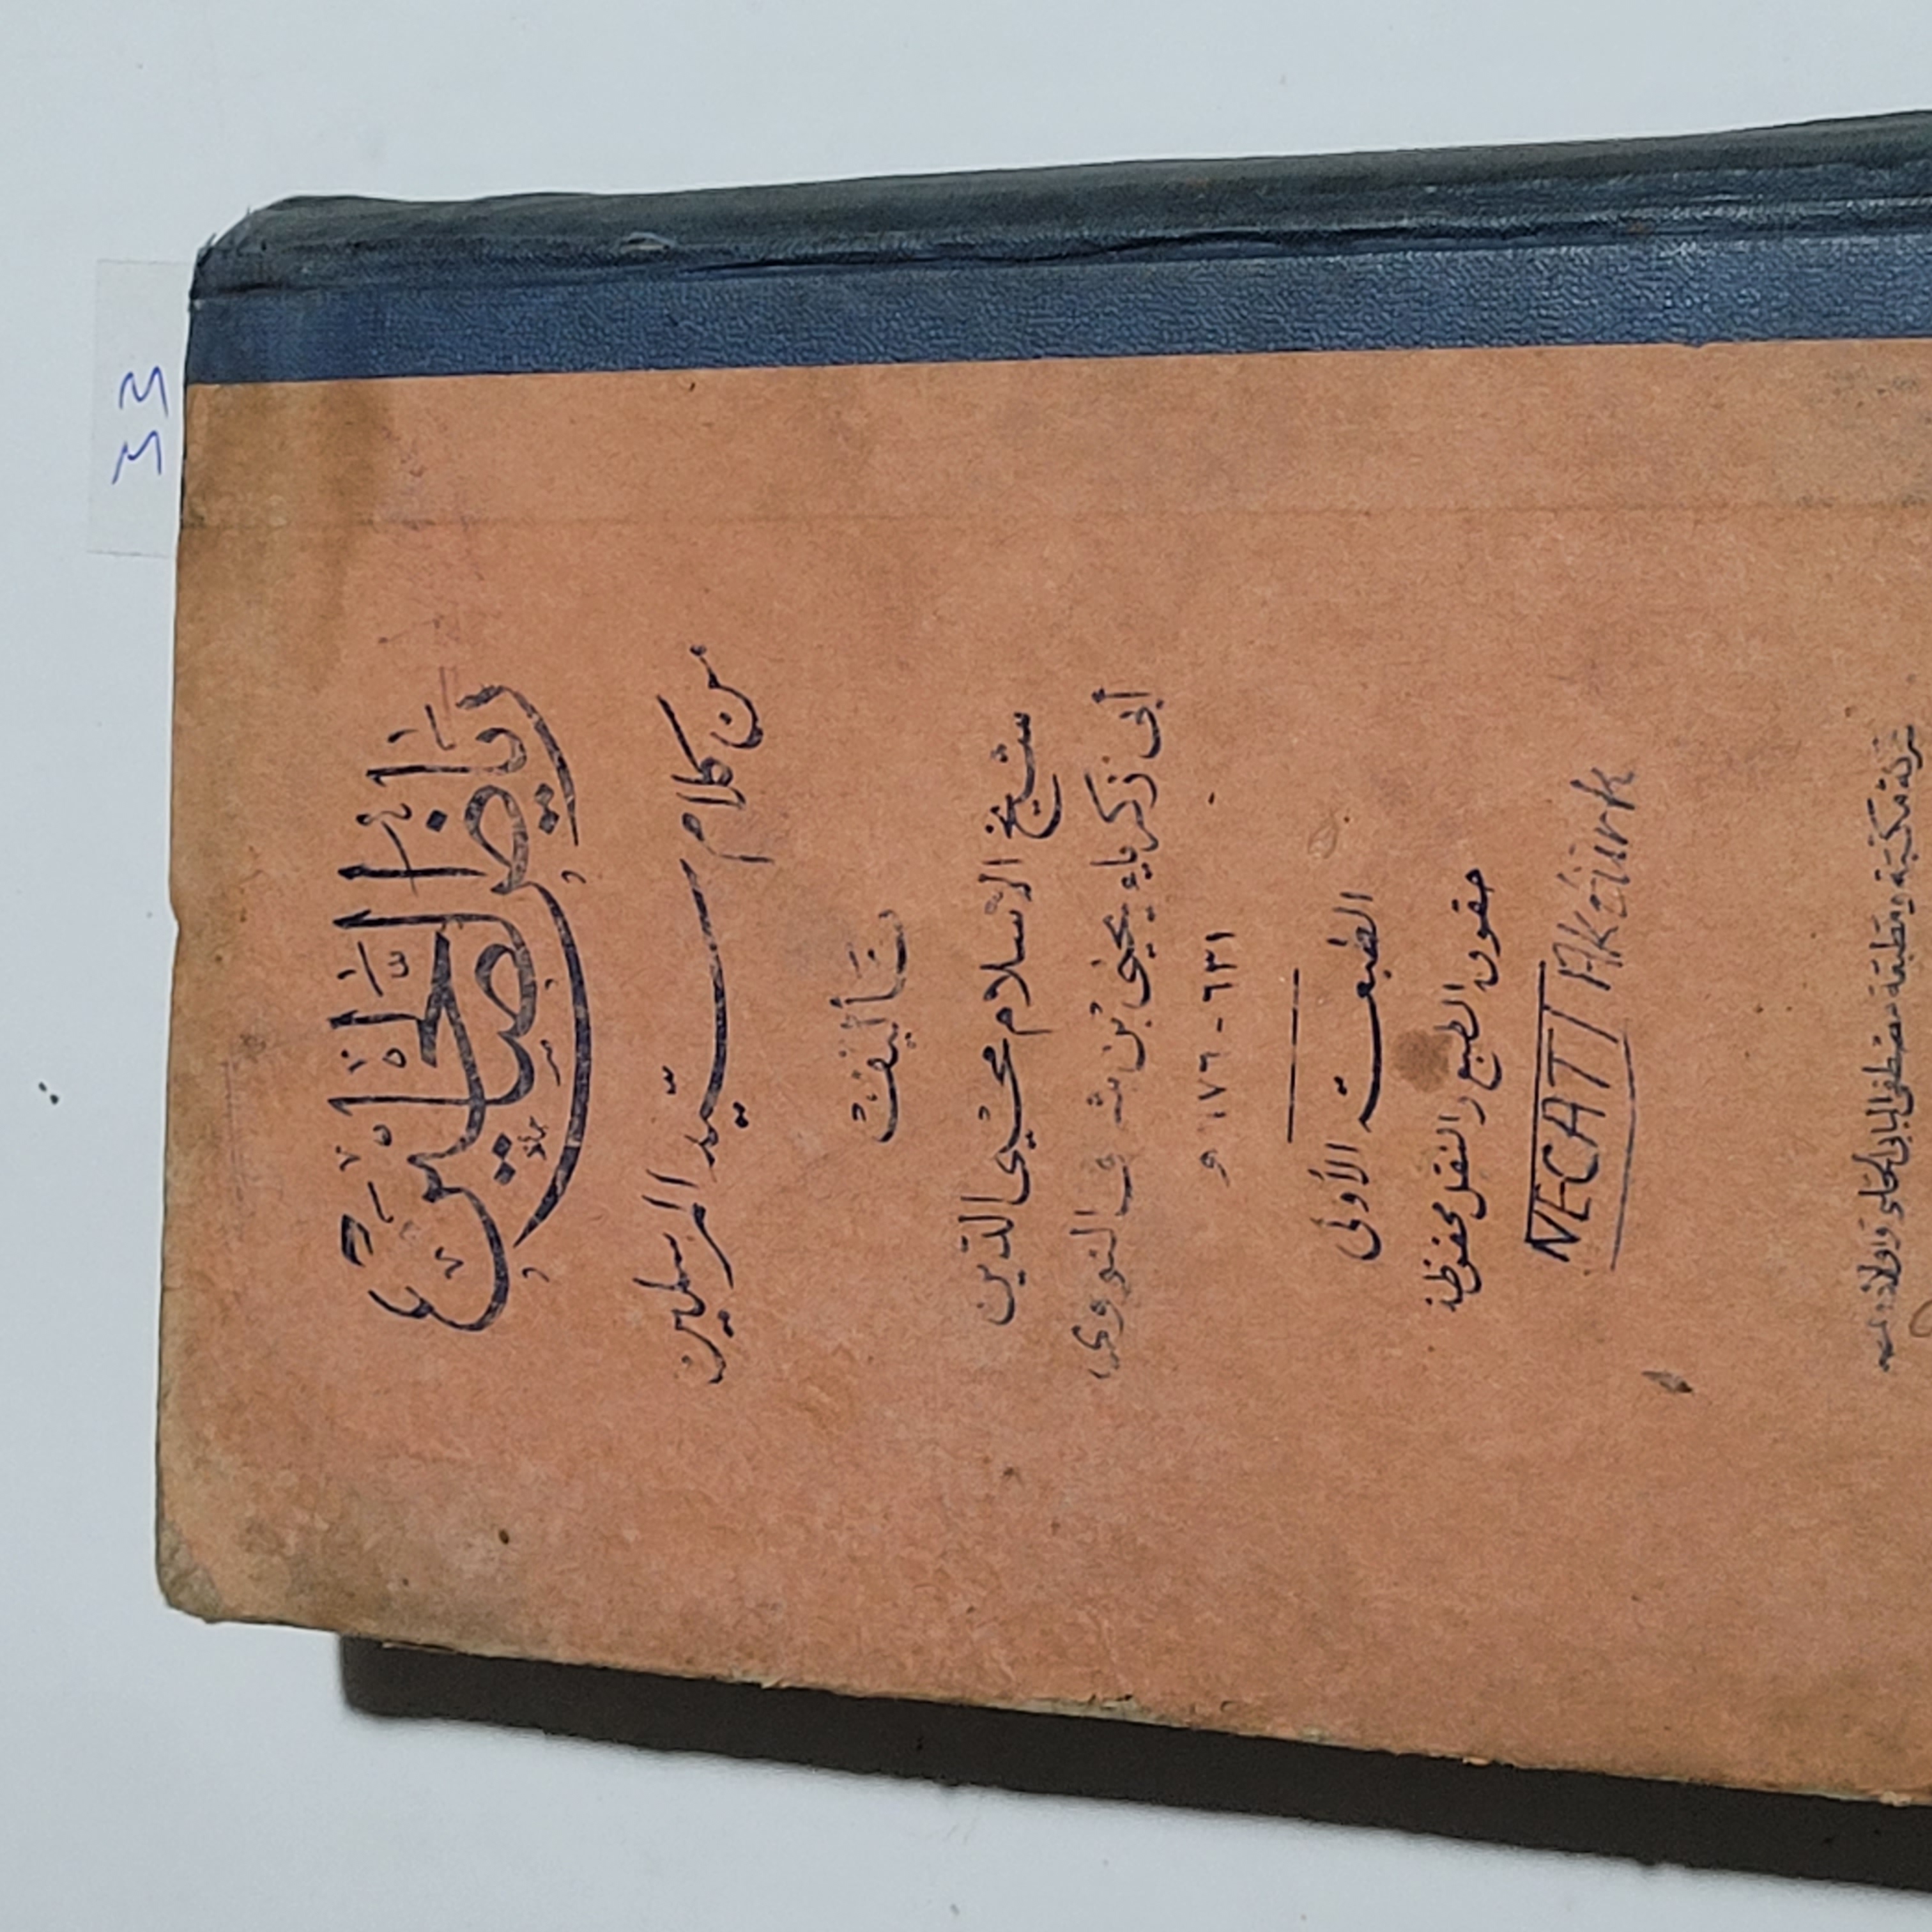 رِيَاضُ الصَّالِحِينَ
من كلام سيّد المرسلين
تأليف
شيخ الاسلام محيى الدّين
أبى زكرياء يحيى بن شرف النووى
٦٣١ - ٦٧٦ ﻫ
الطبعة الأولى
حقوق الطبع والنقل محفوظة
NECATI Aktürk
شركة مكتبة ومطبعة مصطفى البابى الحلبى وأولاده بمصر
33